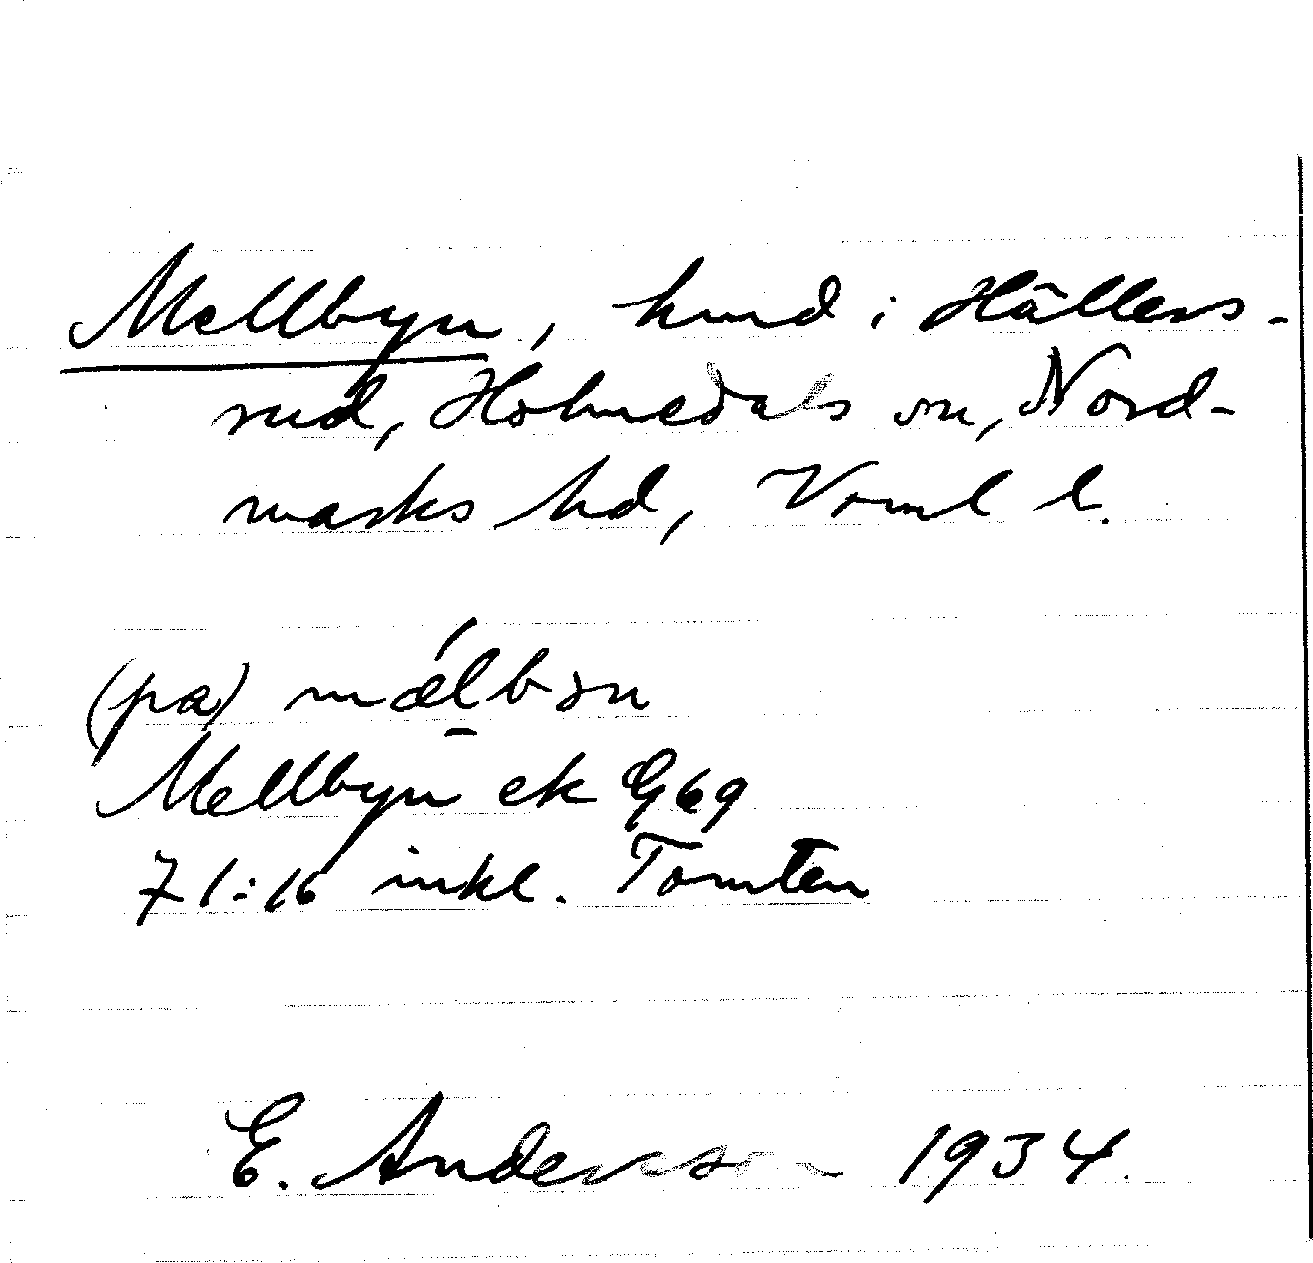 Mellbyn, hmd i Hällers-
rud, Holmedals sn, Nord-
marks hd, Vrml l.
(pa) mǽlbən
Mellbyn ek G 69
71:16 inkl. Tomten
E. Anderson 1934.